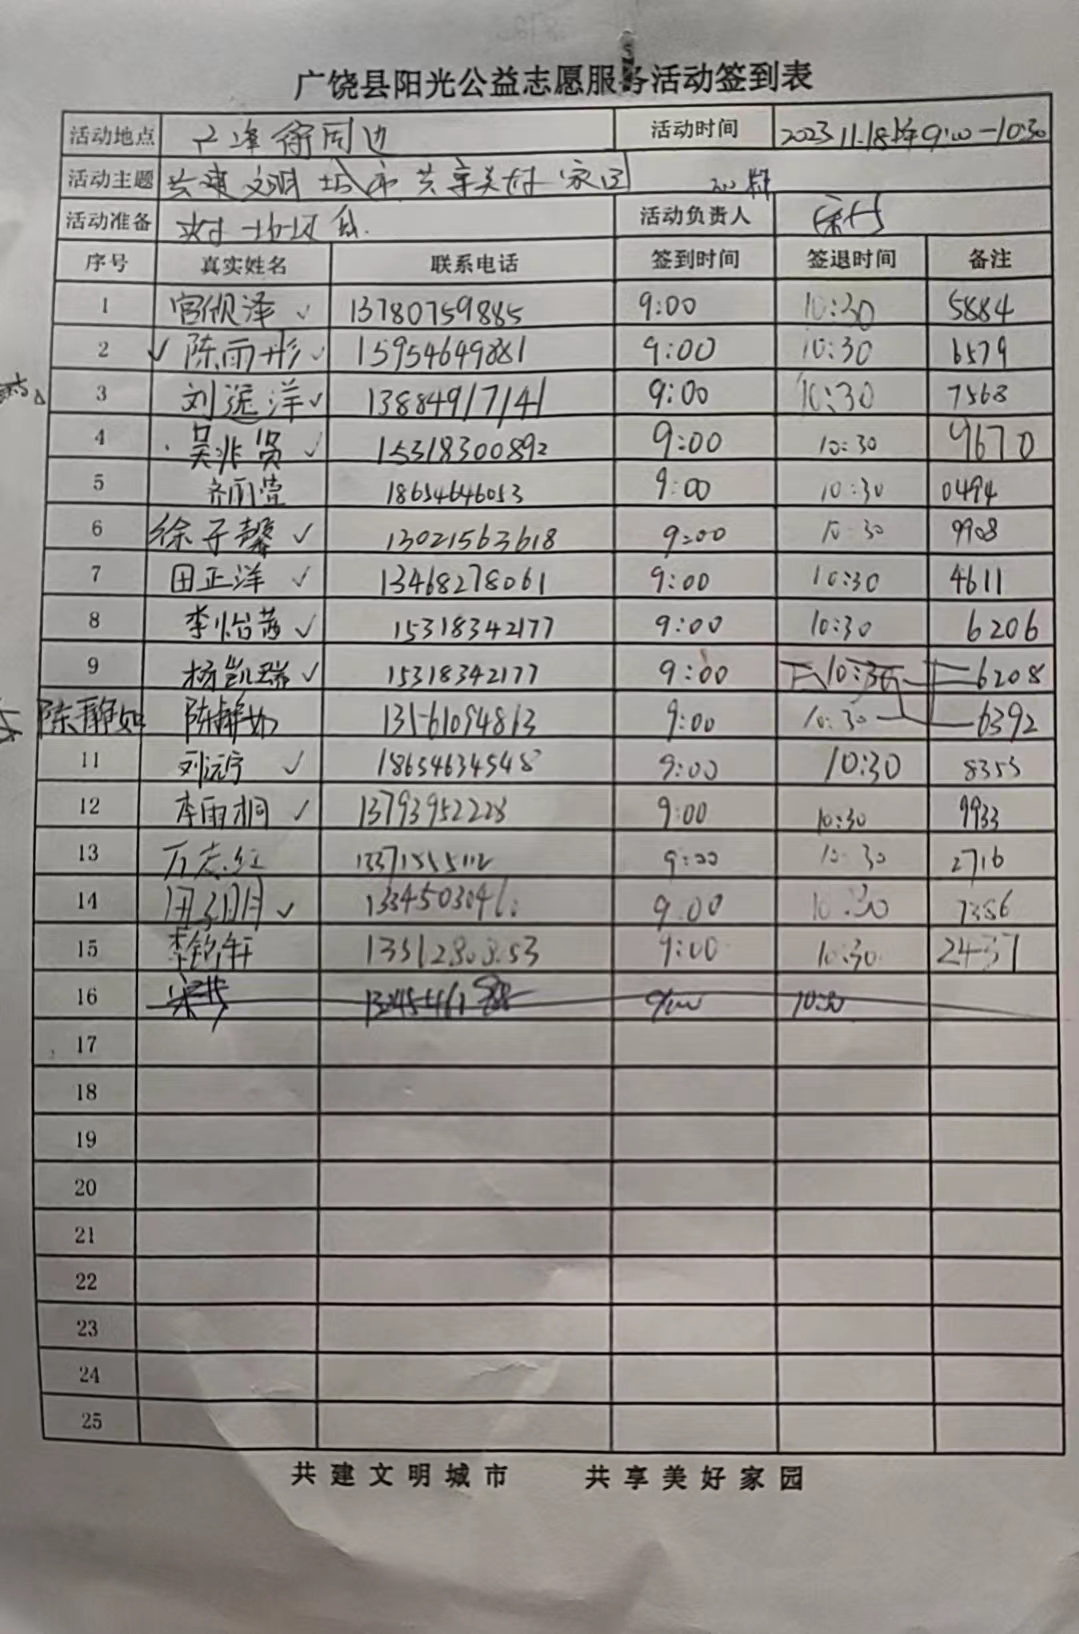 广饶县阳光公益志愿服务活动签到表
活动地点 周边 活动时间 2023.11.18 9:00-10:30
活动主题 共建文明城市 共享美好家园
活动准备 活动负责人
序号 真实姓名 联系电话 签到时间 签退时间 备注
1 13780759885 9:00 10:30 5884
2 陈雨彤 15954649881 9:00 10:30 6579
3 刘远洋 13884917141 9:00 10:30 7568
4 吴兆贤 15318300892 9:00 10:30 9670
5 齐雨萱 18654646053 9:00 10:30 0494
6 徐子馨 13021563618 9:00 10:30 9908
7 田正洋 13468278061 9:00 10:30 4611
8 李怡茜 15318342177 9:00 10:30 6206
9 杨凯瑞 15318342177 9:00 10:30 6208
陈静如 陈静如 13561094813 9:00 10:30 6392
11 刘沅宁 18654634548 9:00 10:30 8355
12 李雨桐 13793952228 9:00 10:30 9933
13 万志红 9:00 10:30 2716
14 9:00 10:30 7386
15 9:00 10:30 2437
16 9:00 10:30
17
18
19
20
21
22
23
24
25
共建文明城市 共享美好家园